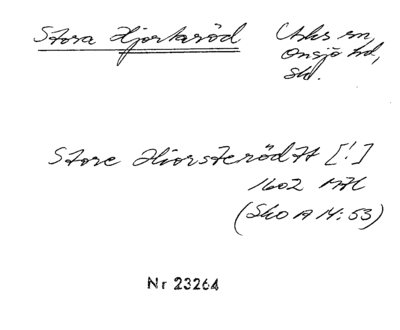 Stora Hjortaröd
sn,
Onsjö hd,
Sk.
Store Hiorsterödtt [!]
1602
(SkO A 14:53)
Nr 23264